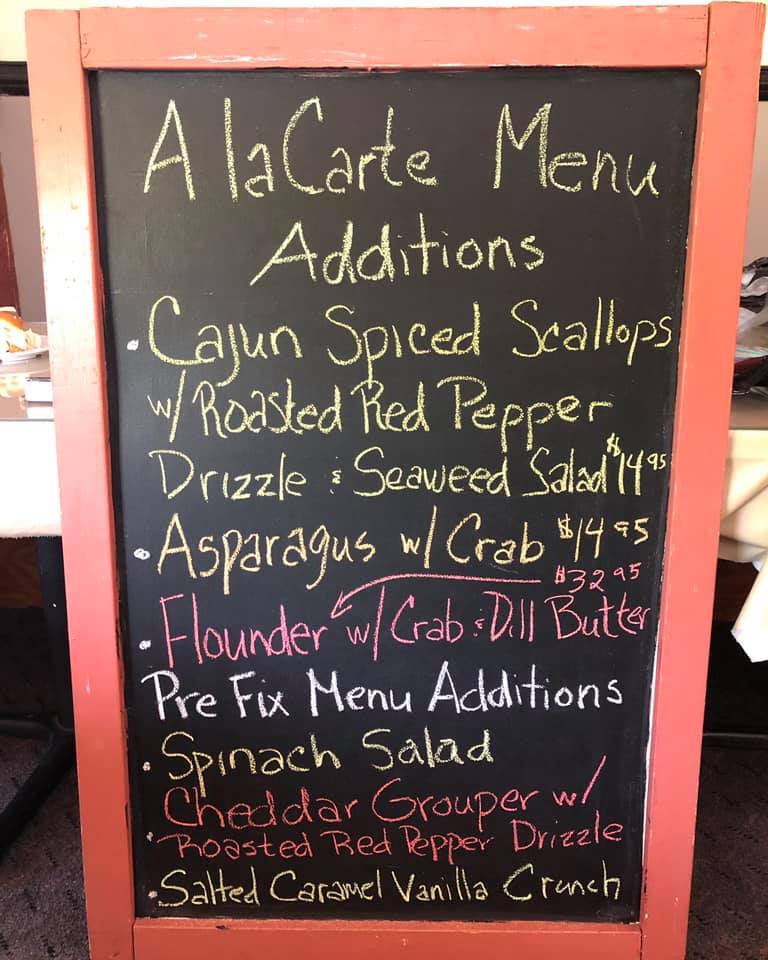 A la Carte Menu
Additions
• Cajun Spiced Scallops
w/ Roasted Red Pepper
Drizzle & Seaweed Salad $14.95
• Asparagus w/ Crab $14.95
$32.95
• Flounder w/ Crab & Dill Butter
Pre Fix Menu Additions
• Spinach Salad
Cheddar Grouper w/
• Roasted Red Pepper Drizzle
• Salted Caramel Vanilla Crunch